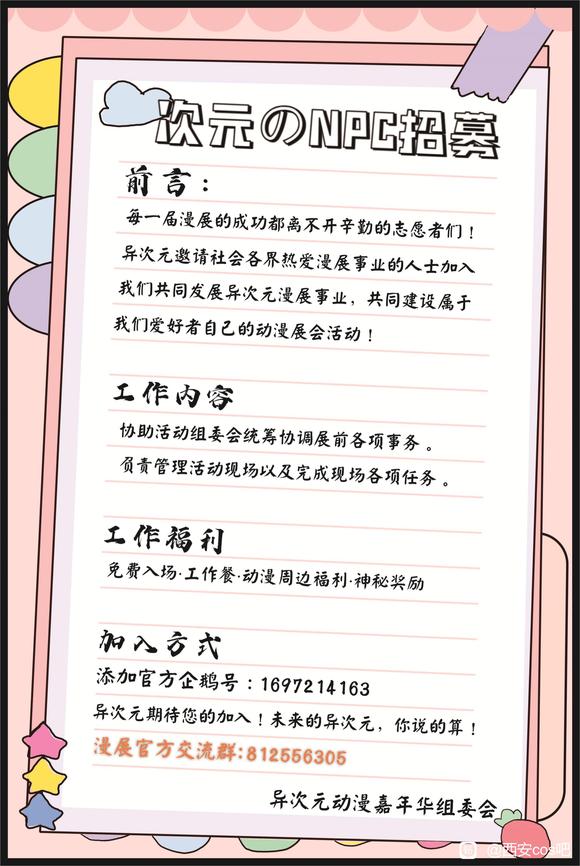 次元のNPC招募
前言：
每一届漫展的成功都离不开辛勤的志愿者们！
异次元邀请社会各界热爱漫展事业的人士加入
我们共同发展异次元漫展事业，共同建设属于
我们爱好者自己的动漫展会活动！
工作内容
协助活动组委会统筹协调展前各项事务。
负责管理活动现场以及完成现场各项任务。
工作福利
免费入场·工作餐·动漫周边福利·神秘奖励
加入方式
添加官方企鹅号：1697214163
异次元期待您的加入！未来的异次元，你说的算！
漫展官方交流群:812556305
异次元动漫嘉年华组委会
@西安cos吧